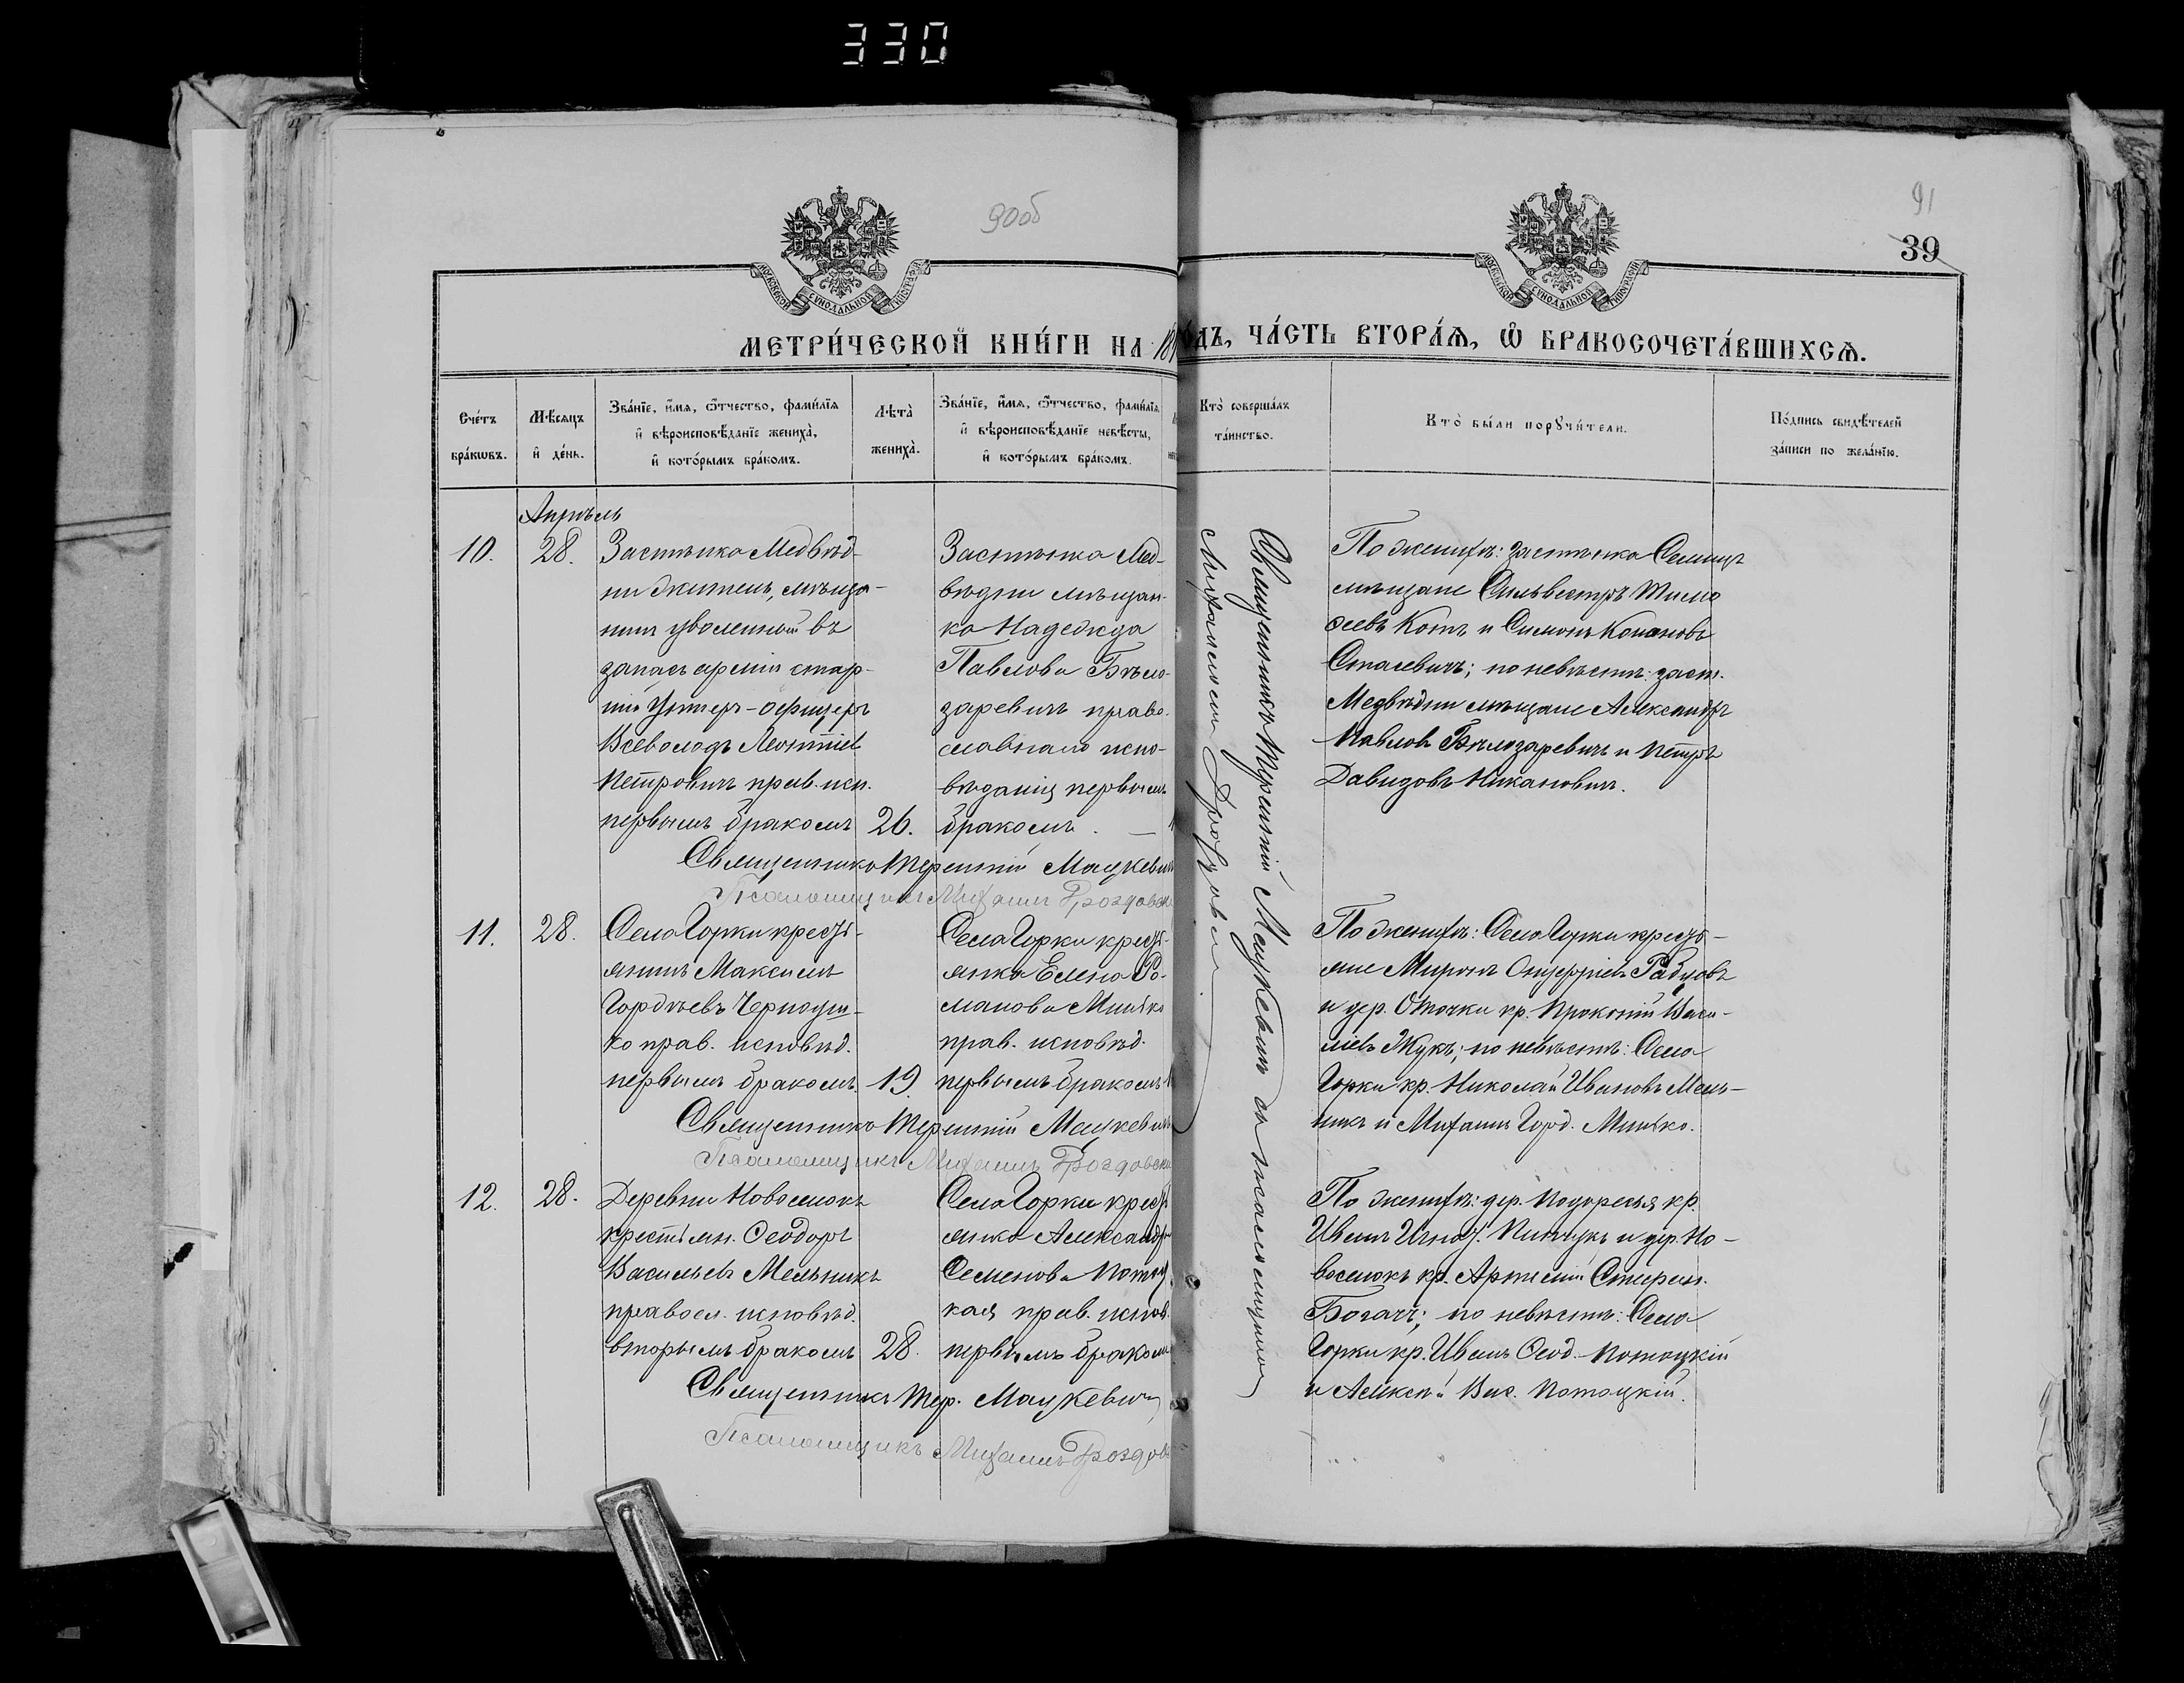 330
90об
91
39
МОСКОВСКОЙ СѴНОДАЛЬНОЙ ТИПОГРАФІИ
МОСКОВСКОЙ СѴНОДАЛЬНОЙ ТИПОГРАФІИ
МЕТРИ́ЧЕСКОЙ КНИ́ГИ НА 18
ОДЪ, ЧА́СТЬ ВТОРА́Ѧ, Ѿ БРАКОСОЧЕТА́ВШИХСѦ.
Сче́тъ
бра́кωвъ.
Мѣ́сяцъ
и҆ де́нь.
Зва́нїе, и҆́мѧ, ѻ҆́тчество, фамѝлїѧ
и҆ вѣроисповѣ́данїе жениха̀,
и҆ кото́рымъ бра́комъ.
Лѣта̀
жениха̀.
Зва́нїе, и҆́мѧ, ѻ҆́тчество, фамѝлїѧ
и҆ вѣроисповѣ́данїе невѣ́сты,
и҆ кото́рымъ бра́комъ.
Кто̀ соверша́лъ
та́инство.
Кто̀ бы́ли порꙋчи́тели.
По́дпись свидѣ́телей
за́писи по жела́нїю.
Апрѣль
10.
28.
Застѣнка Медвѣд-
ни житель, мѣща-
нинъ уволенный въ
запасъ арміи стар-
шій Унтеръ-офицеръ
Всеволодъ Леонтіев
Петровичъ прав. исп.
первымъ бракомъ
26.
Застѣнка Мед-
вѣдни мѣщан-
ка Надежда
Павлова Бѣло-
заревичъ право-
славнаго испо-
вѣданія первымъ
бракомъ. —
По женихѣ: застѣнка Селищъ
мѣщане Сильвестръ Тимо
ѳеевъ Котъ и Симонъ Кононовъ
Стасевичъ; по невѣстѣ: заст.
Медвѣдни мѣщане Александръ
Павловъ Бѣлозаревичъ и Петръ
Давидовъ Никановичъ.
Священникъ Терентій Мацкевичъ
Псаломщикъ Михаилъ Дроздовск
11.
28.
Села Горки кресть-
янинъ Максимъ
Гордѣевъ Черноуш-
ко прав. исповѣд.
первымъ бракомъ.
19.
Села Горки кресть-
янка Елена Ро-
манова Минько
прав. исповѣд.
первымъ бракомъ
По женихѣ: Села Горки кресть-
яне Миронъ Онуфріевъ Рабцевъ
и дер. Оточки кр. Прокопій Васи-
льевъ Жукъ; по невѣстѣ: Села
Горки кр. Николай Ивановъ Мель-
никъ и Михаилъ Горд. Минько.
Священникъ Терентій Мацкевичъ
Псаломщикъ Михаилъ Дроздовски
12.
28.
Деревни Новоселокъ
крестьян. Ѳеодоръ
Васильевъ Мельникъ
правосл. исповѣд.
вторымъ бракомъ
28.
Села Горки кресть
янка Александра
Семенова Потоц
кая прав. исповѣ.
первымъ браком
По женихѣ: дер. Подоресья кр.
Иванъ Игнат. Пинчукъ и дер. Но-
воселокъ кр. Артемій Стефан.
Богачъ; по невѣстѣ: Села
Горки кр. Иванъ Ѳеод. Потоцкій
и Алексѣй Вас. Потоцкій.
Священникъ Тер. Мацкевичъ
Псаломщикъ Михаилъ Дроздов
Священникъ Терентій Мацкевичъ съ псаломщикомъ
Михаиломъ Дроздовск